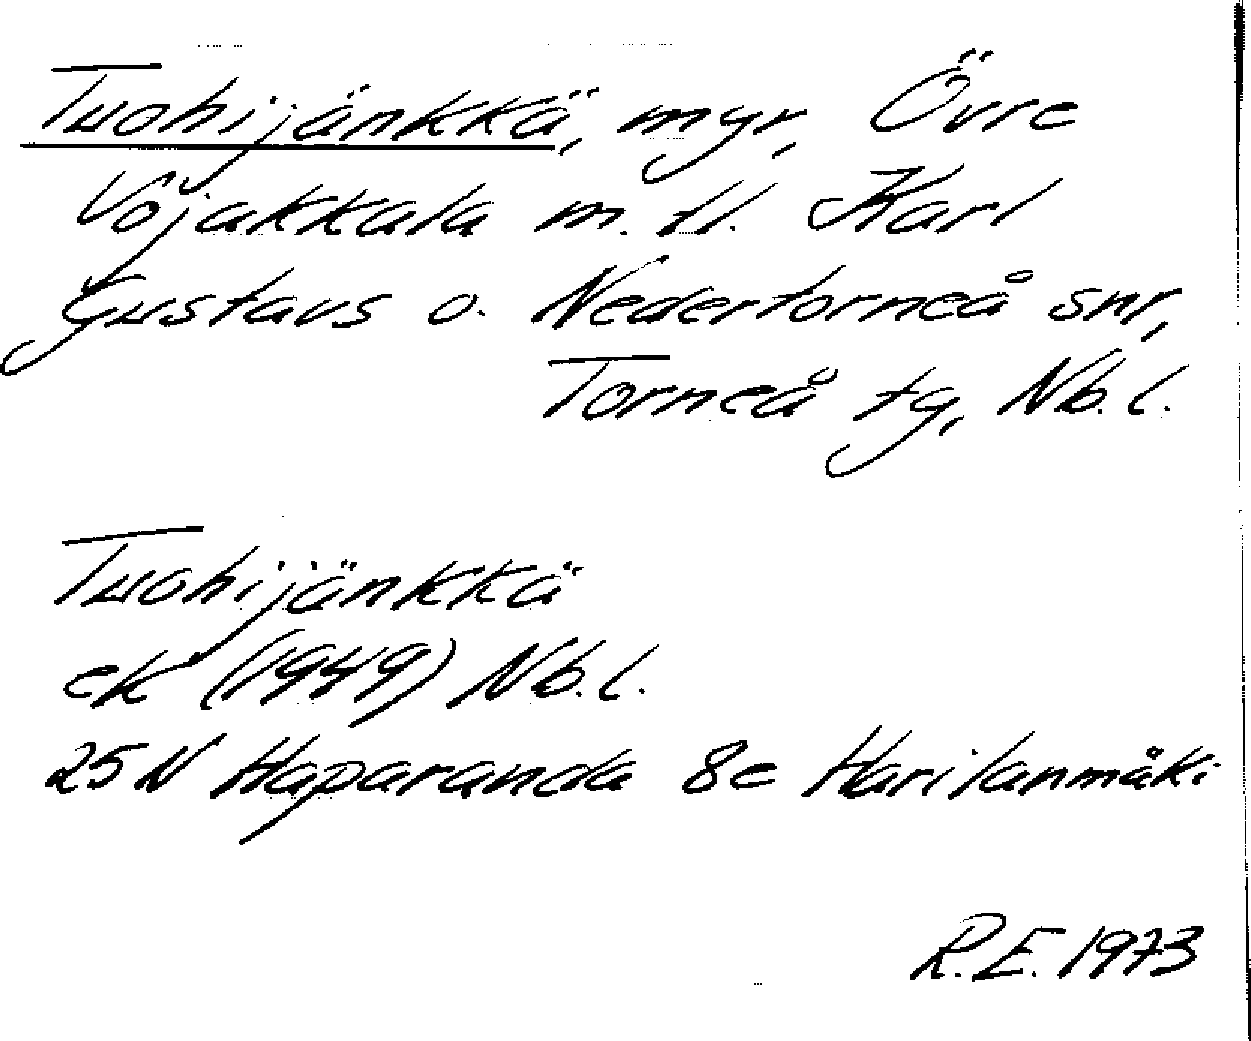 Tuohijänkkä, myr, Övre
Vojakkala m. fl. Karl
Gustavs o. Nedertorneå snr,
Torneå tg, Nb. l.
Tuohijänkkä
ek (1949) Nb. l.
25 N Haparanda 8e Harilanmäki
R. E. 1973